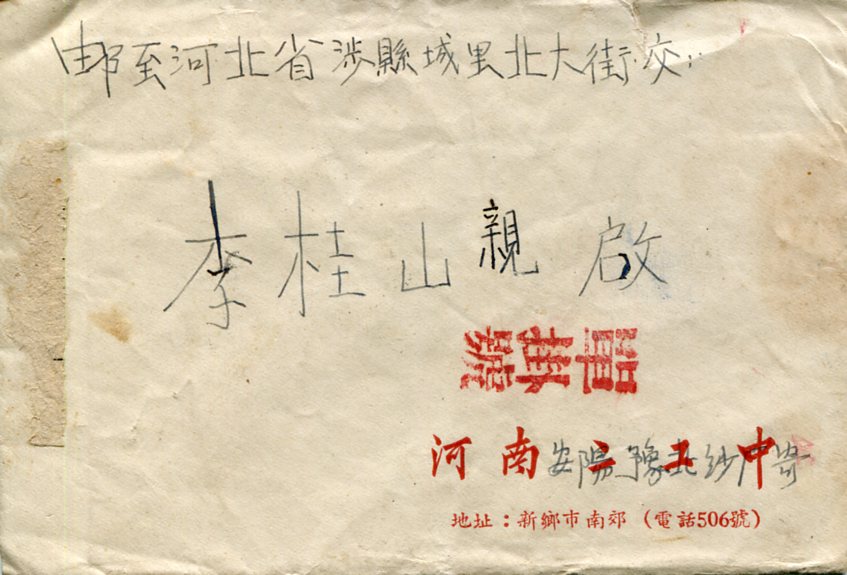 邮至河北省涉縣城里北大街交:
李桂山親啟
單掛號
河南二工中
安陽豫北紗厂寄
地址：新鄉市南郊（電話506號）